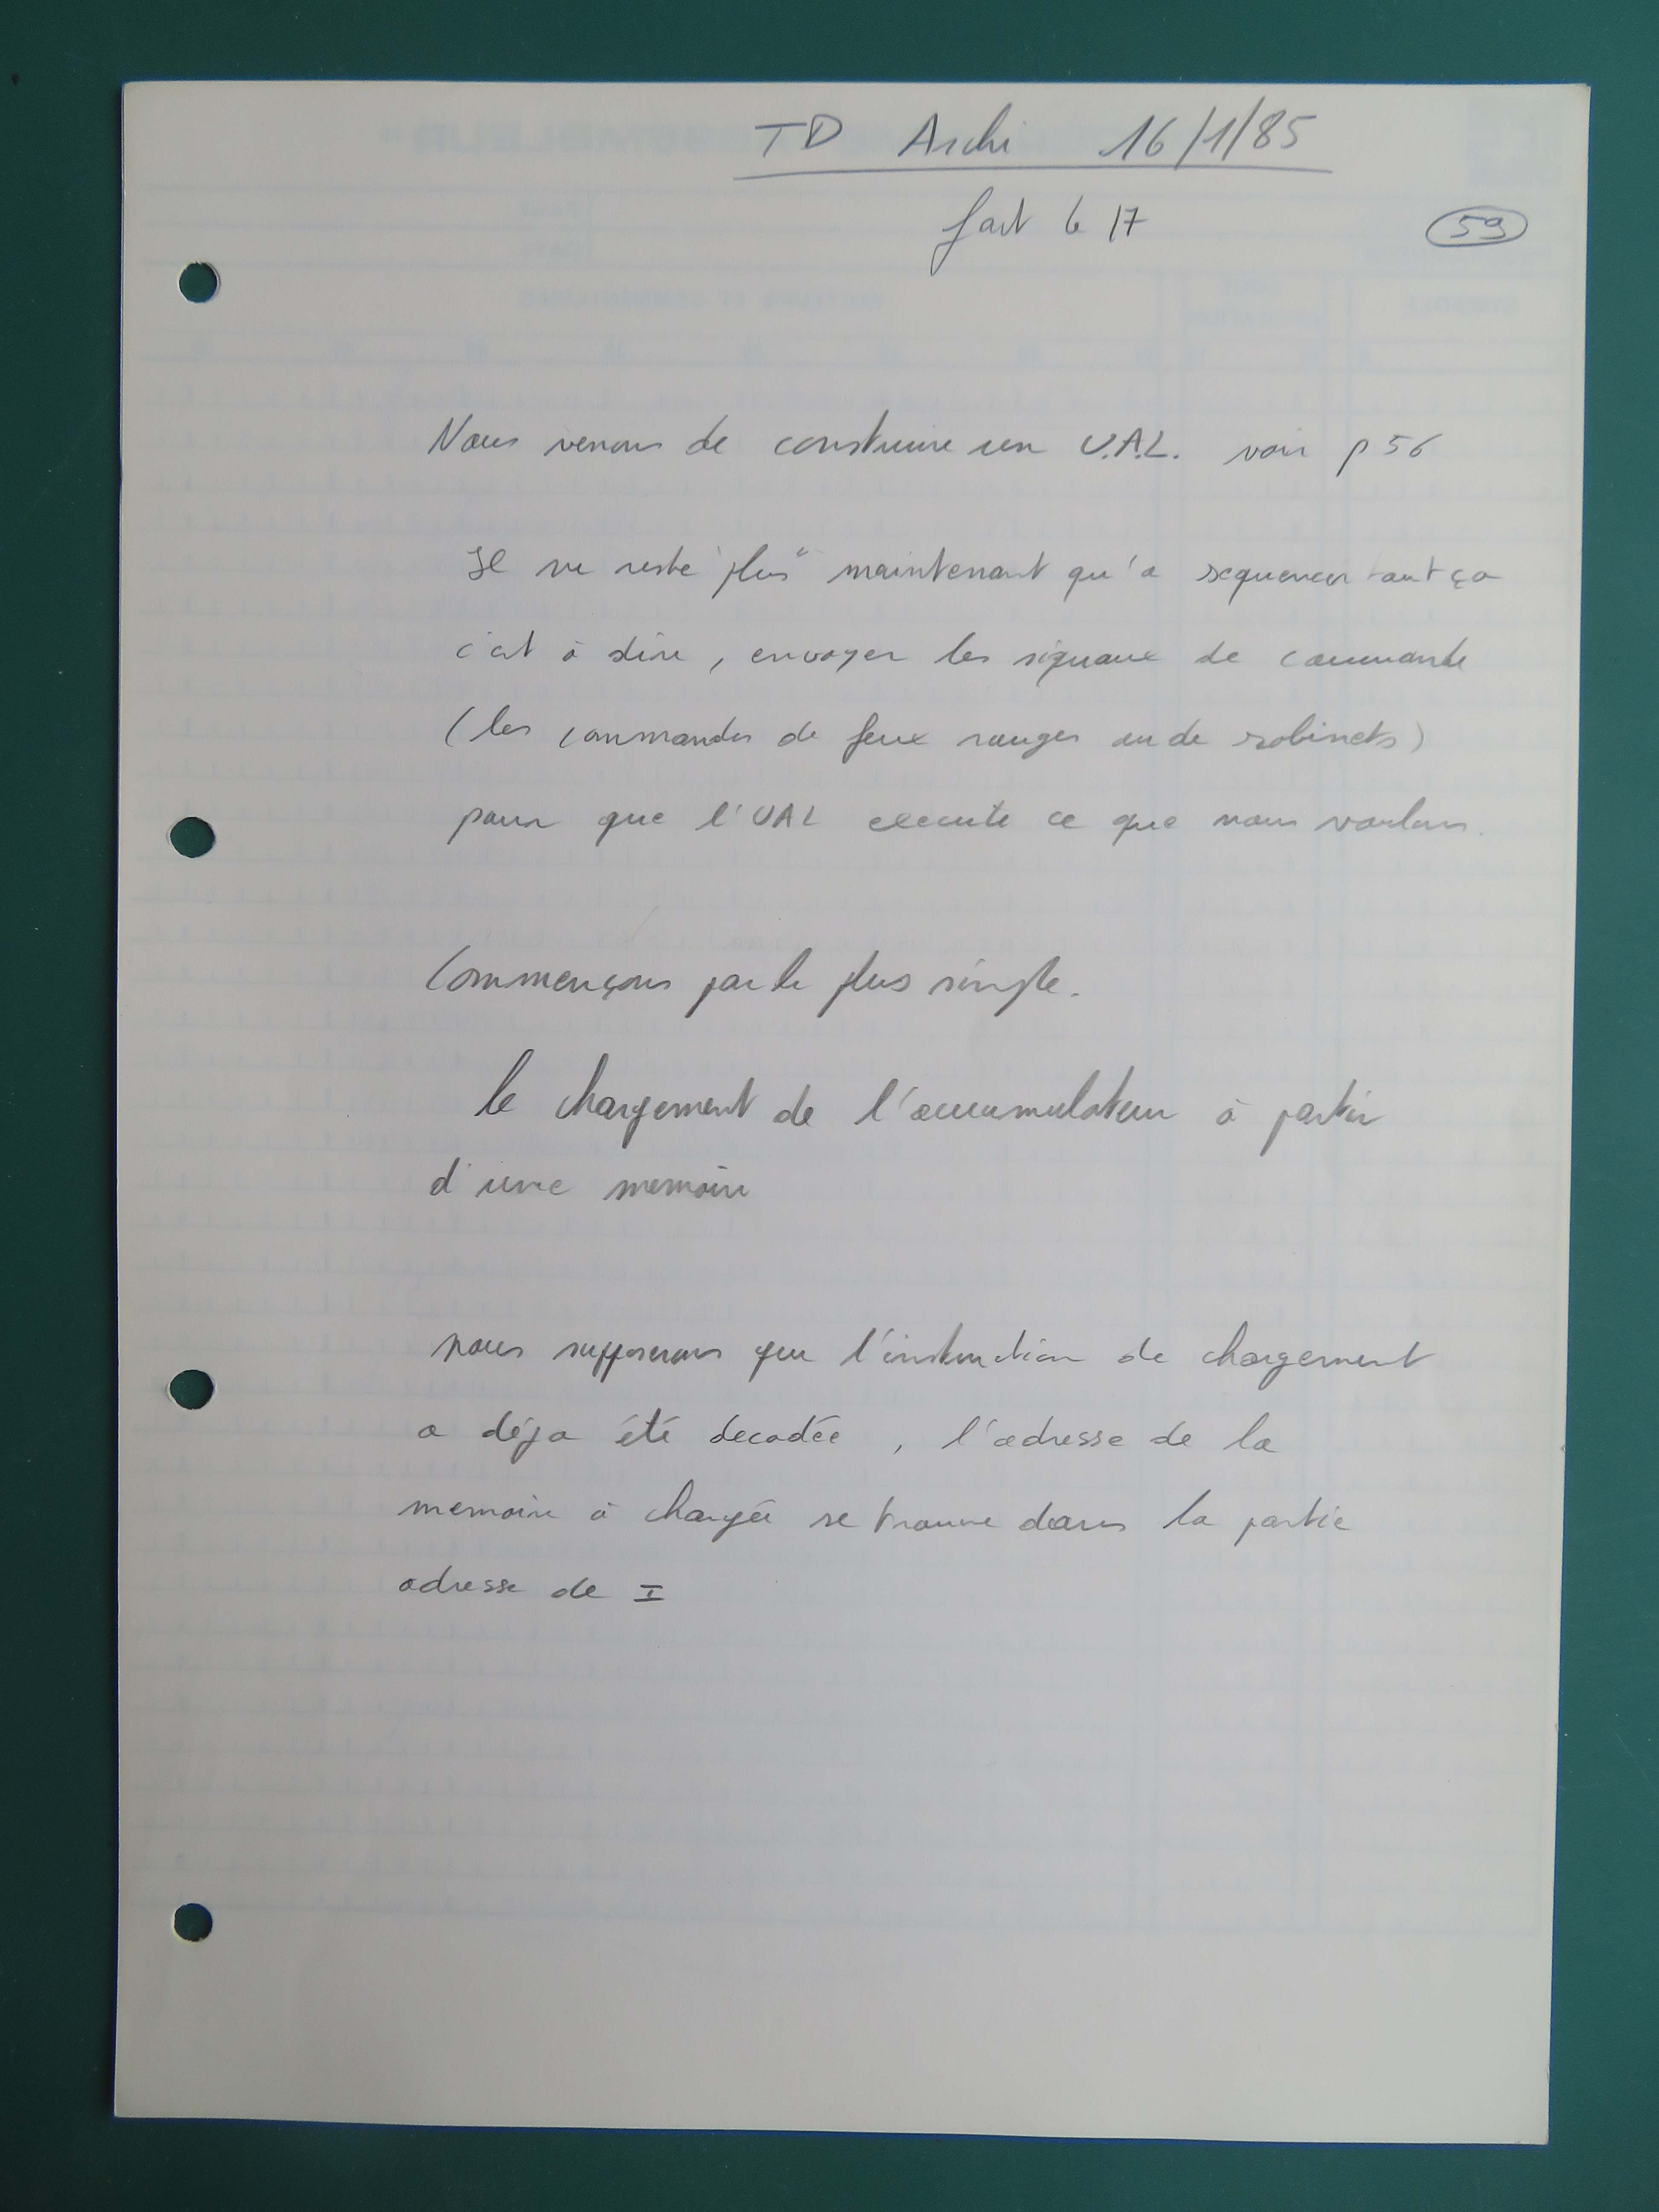 TD Archi 16/1/85
fait le 17
59
Nous venons de construire un U.A.L. voir p 56
Il ne reste "plus" maintenant qu'a sequencer tout ça
c'est à dire, envoyer les signaux de commande
(les commandes de feux rouges ou de robinets)
pour que l'UAL execute ce que nous voulons.
Commençons par le plus simple.
le chargement de l'accumulateur à partir
d'une memoire
nous supposerons que l'instruction de chargement
a déja été decodée, l'adresse de la
memoire à chargée se trouve dans la partie
adresse de I